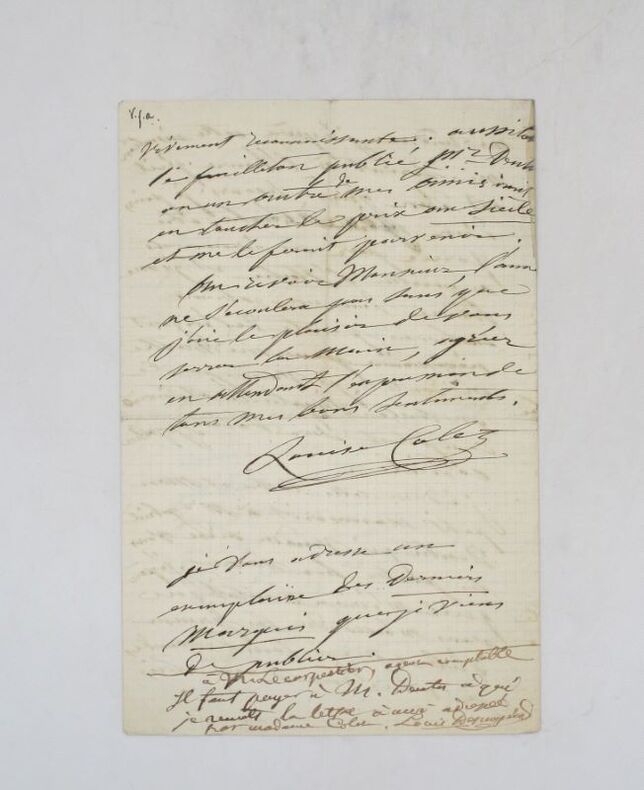 V.f.a.
vivement reconnaissante. aussitot
le feuilleton publié Mr
ou un autre de mes amis
en touchera le prix au Siècle
et me le ferait parvenir.
Au revoir Monsieur, l'année
ne s'écoulera pas sans que
j'aie le plaisir de vous
serrer la main, agréez
en attendant l'expression de
tous mes bons sentiments.
Louise Colet
je vous adresse un
exemplaire des Derniers
Marquis que je viens
de publier.
à M. Lecarpentier, agent comptable
Il faut payer à M. à qui
je remets la lettre à moi adressée
par madame Colet. Louis Desnoyers